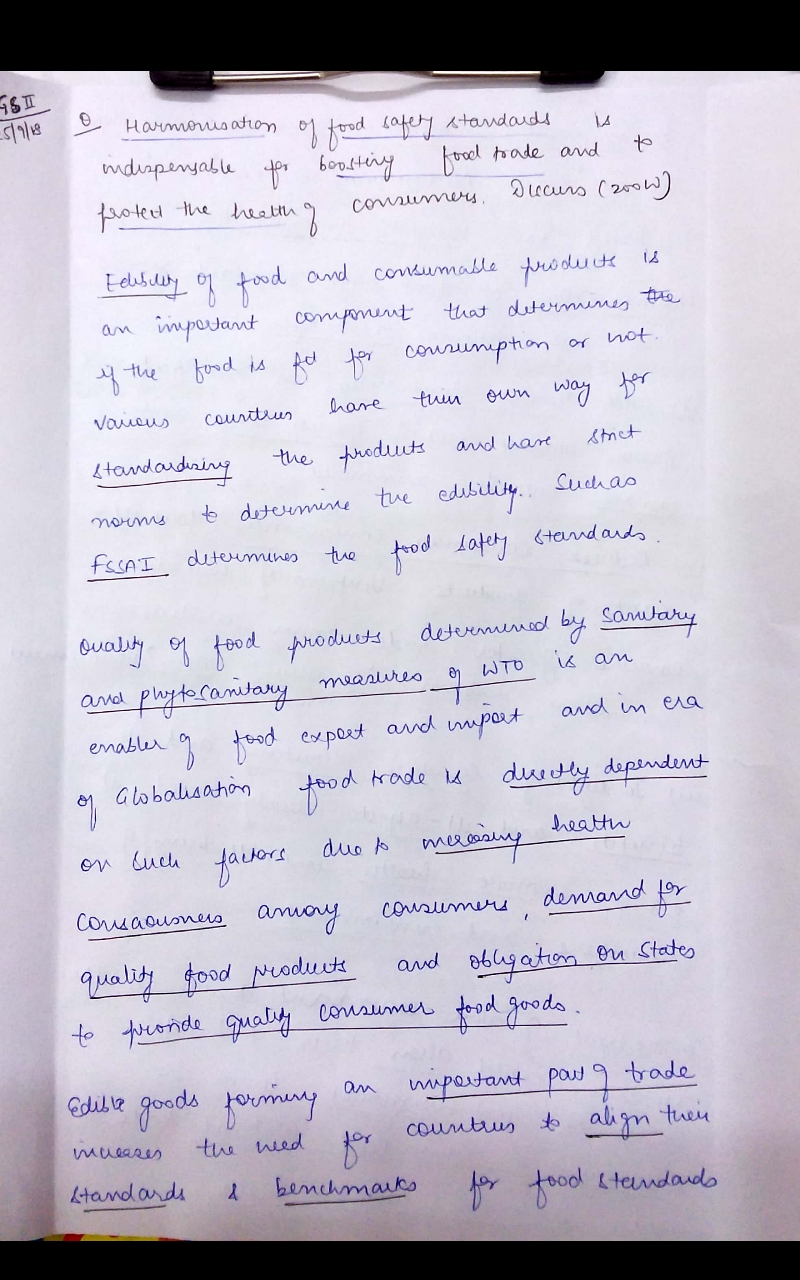 GS II
5/9/18
Q Harmonisation of food safety standards is
indispensable for boosting food trade and to
protect the health of consumers. Discuss (200W)
Edibility of food and consumable products is
an important component that determines the
if the food is fit for consumption or not.
Various countries have their own way for
standardizing the products and have strict
norms to determine the edibility. Such as
FSSAI determines the food safety standards.
Quality of food products determined by sanitary
and phytosanitary measures of WTO is an
enabler of food export and import and in era
of Globalisation food trade is directly dependent
on such factors due to increasing health
consciousness among consumers, demand for
quality food products and obligation on States
to provide quality consumer food goods.
Edible goods forming an important part of trade
increases the need for countries to align their
standards & benchmarks for food standards